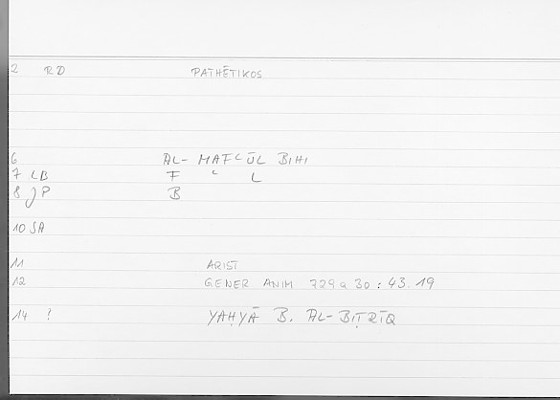 2 RD PATHĒTIKOS
6 AL- MAFʿŪL BIHI
7 LB F ʿ L
8 JP B
10 SA
11 ARIST
12 GENER ANIM 729a30 : 43.19
14 ? YAḤYĀ B. AL-BIṬRĪQ